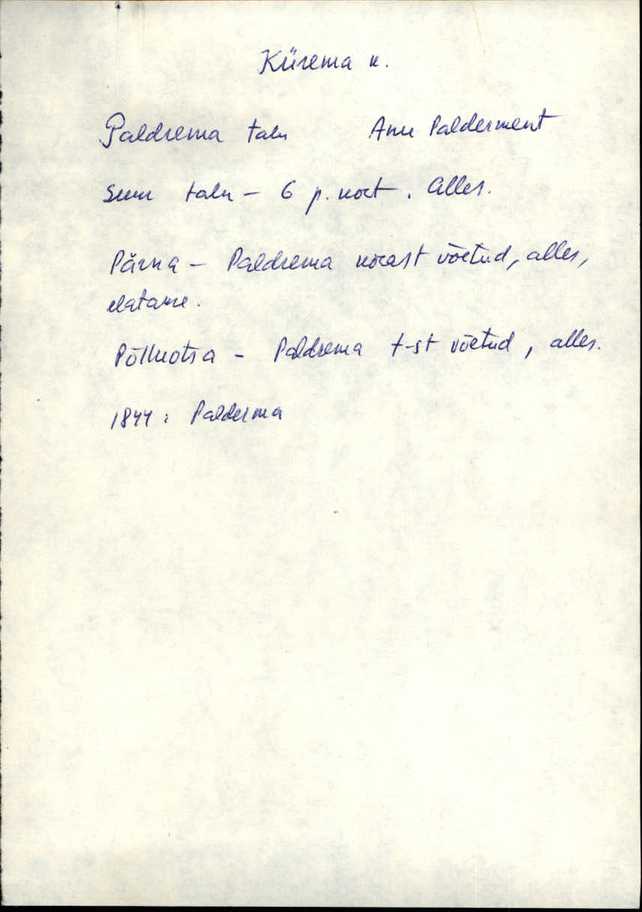 Kiirema k.
Paldrema talu Anu Palderment
Suur talu – 6 p. kort. Alles.
Pärna – Paldrema kõrast võetud, alles,
elatakse.
Põlluotsa – Paldrema t-st võetud, alles.
1844: Palderma